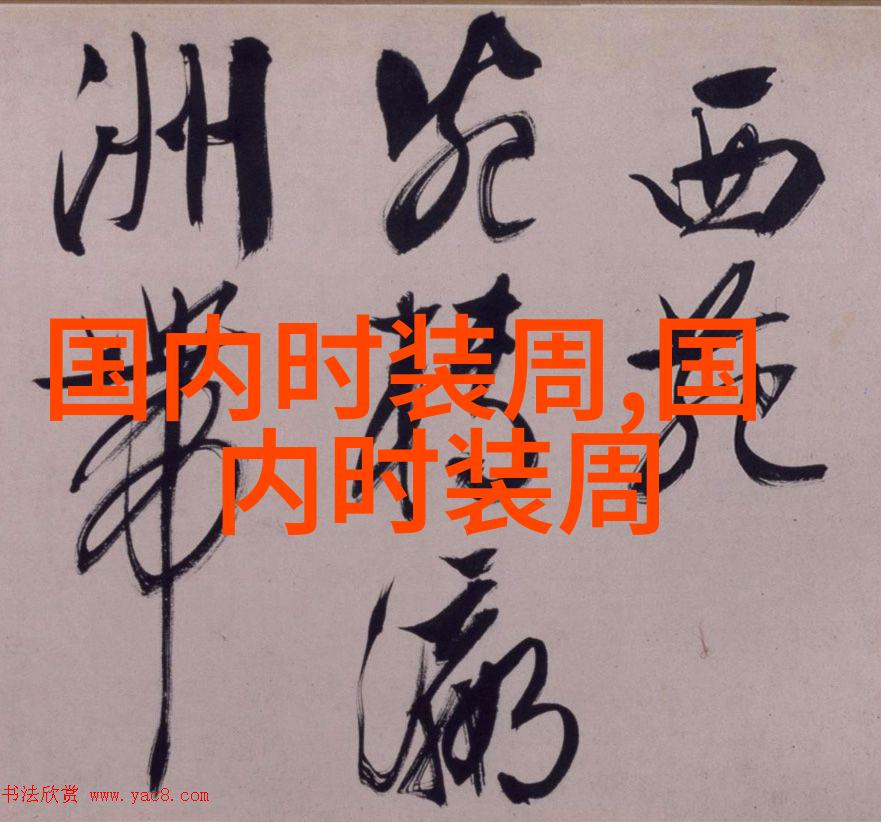 西苑
瀛
洲帶
国内时装周,国
内时装周
书法欣赏 www.yac8.com